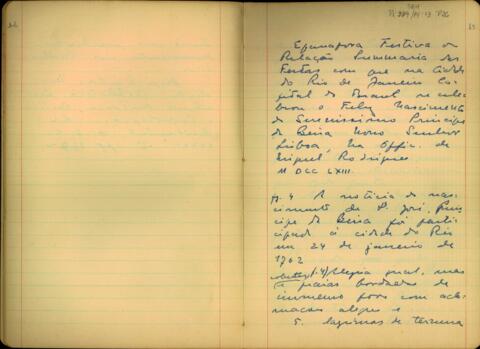 Epanafora Festiva ou
Relação Summaria das
Festas com que na Cidade
do Rio de Janeiro Ca
pital do Brasil se cele
brou o Feliz Nascimento
do Serenissimo Principe
da Beira Nosso Senhor
Lisboa, Na Offic. de
Miguel Rodrigues
M DCC LXIII.
p. 4 A noticia do nas
cimento de D. José, Prin
cipe da Beira foi parti
cipada à cidade do Rio
em 24 de janeiro de
1762
Alegria geral, mas
praias bordadas de
immenso povo com acla
mações alegres e
5. lagrimas de ternura